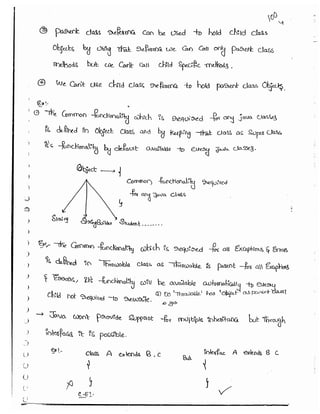 100
③ parent class reference can be used to hold child class
Objects by using that reference we can call only parent class
methods but we Can't call child specific methods.
④ we can't use child class reference to hold parent class Objects.
Ex:-
① The Common functionality which is required for any java classes
is defined in Object class and by keeping that class as Super class
it's functionality by default available to every java classes.
Object → {
Common functionality required
for any Java class
}
String StringBuilder Student........
Ex:- The Common functionality which is required for all Exceptions & Errors
is defined in Throwable class as Throwable is parent for all Exceptions
& Errors, its functionality will be available automatically to every
child not required to rewrite.
→ Java won't provide support for multiple inheritance but Through
interfaces it is possible.
Ex:- class A extends B, C But interface A extends B C
{ {
} }
C.E!